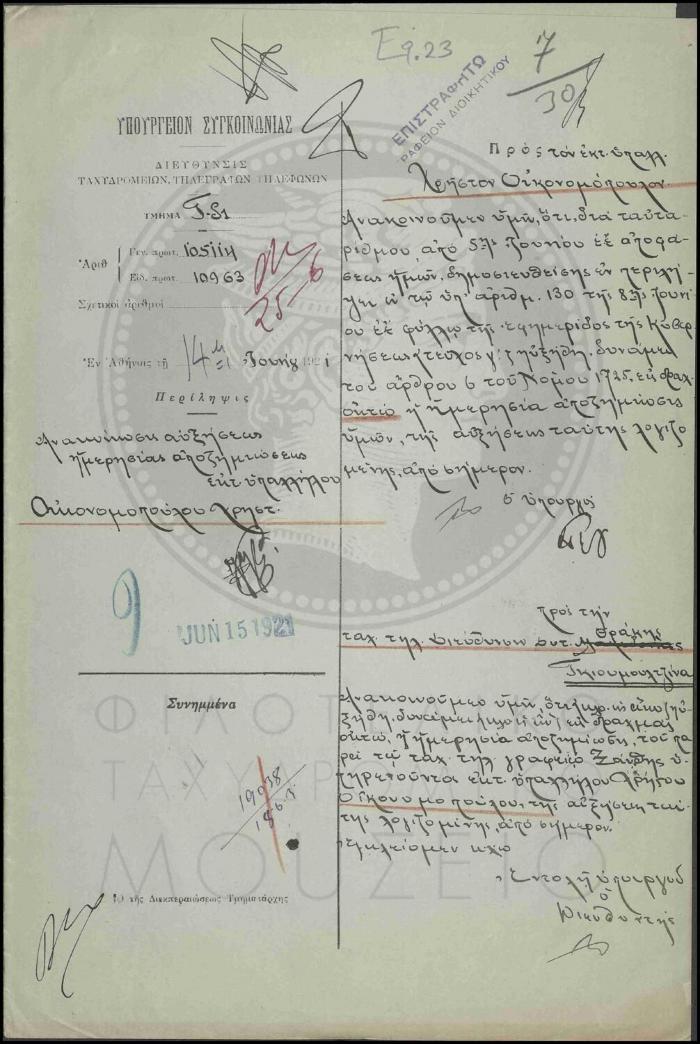 Εφ. 23
7
30
ΕΠΙΣΤΡΑΦΗΤΩ
ΓΡΑΦΕΙΟΝ ΔΙΟΙΚΗΤΙΚΟΥ
ΥΠΟΥΡΓΕΙΟΝ ΣΥΓΚΟΙΝΩΝΙΑΣ
ΔΙΕΥΘΥΝΣΙΣ
ΤΑΧΥΔΡΟΜΕΙΩΝ, ΤΗΛΕΓΡΑΦΩΝ ΤΗΛΕΦΩΝΩΝ
ΤΜΗΜΑ
Ἀριθ
Γεν. πρωτ. 105114
Εἰδ. πρωτ. 10963
Σχετικοὶ ἀριθμοὶ
25-6
Ἐν Ἀθήναις τῇ 14 Ἰουνίου 1921
Περίληψις
Ἀνακοίνωσις αὐξήσεως
ἡμερησίας ἀποζημιώσεως
ἐκτ ὑπαλλήλου
Οἰκονομοπούλου Χρήστ.
9
JUN 15 1921
Συνημμένα
19038
Ὁ τῆς Διεκπεραιώσεως Τμηματάρχης
Πρὸς τὸν ἐκτ. ὑπάλλ.
Χρῆστον Οἰκονομόπουλον.
Ἀνακοινοῦμεν ὑμῖν, ὅτι, διὰ ταυτα-
ρίθμου, ἀπὸ 5ης Ἰουνίου ἐ.ἔ. ἀποφά-
σεως ἡμῶν, δημοσιευθείσης ἐν περιλή-
ψει ἐν τῷ ὑπ' ἀριθμ. 130 τῆς 8ης Ἰουνί-
ου ἐ.ἔ. φύλλῳ τῆς Ἐφημερίδος τῆς Κυβερ-
νήσεως (τεῦχος γ') ηὐξήθη, δυνάμει
τοῦ ἄρθρου 6 τοῦ Νόμου 1725, εἰς δραχ.
ὀκτώ ἡ ἡμερησία ἀποζημίωσις
ὑμῶν, τῆς αὐξήσεως ταύτης λογιζο-
μένης, ἀπὸ σήμερον.
ὁ ὑπουργός
Πρὸς τὴν
Θράκης
ταχ. τηλ. Διεύθυνσιν Δυτ.
Γκιουμουλτζίνα
Ἀνακοινοῦμεν ὑμῖν, ὅτι
ηὐξήθη, δυνάμει εἰς δραχμὰς
ὀκτώ, ἡ ἡμερησία ἀποζημίωσις, τοῦ πα-
ρὰ τῷ ταχ. τηλ γραφείῳ Ξάνθης ὑ-
πηρετοῦντα ἐκτ. ὑπαλλήλου Χρήστου
Οἰκονομοπούλου, τῆς αὐξήσεως ταύ-
της λογιζομένης, ἀπὸ σήμερον.
Ἐντολῇ ὑπουργοῦ
ὁ
Διευθυντής
ΦΙΛΟΤΕΛΙΚΟ
ΤΑΧΥΔΡΟΜΙΚΟ
ΜΟΥΣΕΙΟ